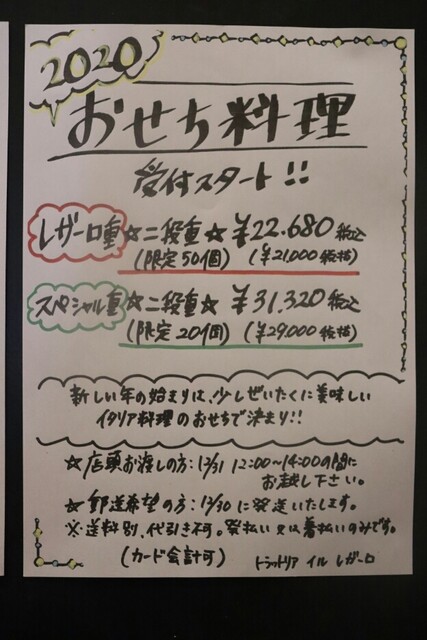 2020
おせち料理
受付スタート!!
レガーロ重☆二段重☆¥22.680税込
(限定50個) (¥21,000税抜)
スペシャル重☆二段重☆ ¥31.320税込
(限定20個) (¥29,000税抜)
新しい年の始まりは、少しぜいたくに美味しい
イタリア料理のおせちで決まり!!
☆店頭お渡しの方:12/31 12:00~14:00の間に
お越し下さい。
☆郵送希望の方:12/30に発送いたします。
※送料別、代引き不可。発払い又は着払いのみです。
(カード会計可) トラットリア イル レガーロ